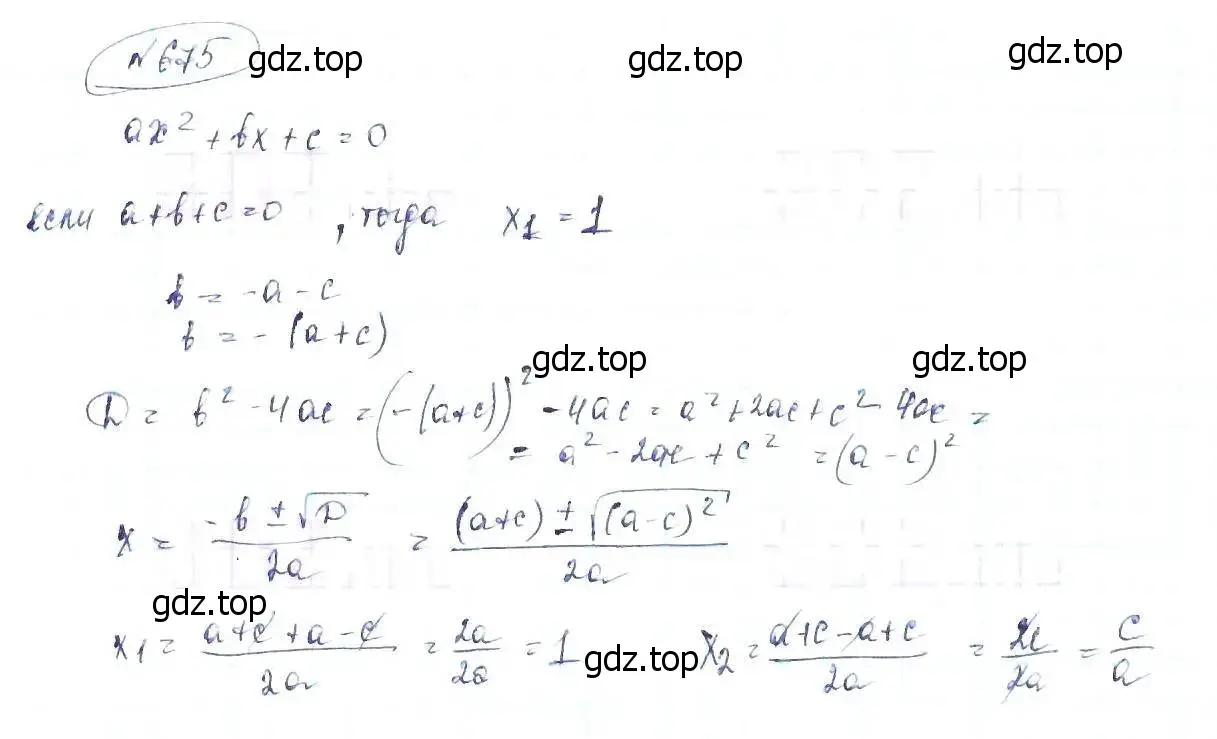 №675 gdz.top gdz.top gdz.top
ax² + bx + c = 0
если a+b+c=0, тогда x₁ = 1
b = -a - c
b = - (a+c)
gdz.top gdz.top
D = b² - 4ac = (-(a+c))² - 4ac = a² + 2ac + c² - 4ac =
= a² - 2ac + c² = (a - c)²
x = (-b ± √D)/(2a) = ((a+c) ± √((a-c)²))/(2a)
gdz.top
x₁ = (a+c+a-c)/(2a) = 2a/2a = 1 gdz.top x₂ = (a+c-a+c)/(2a) = 2c/2a = c/a